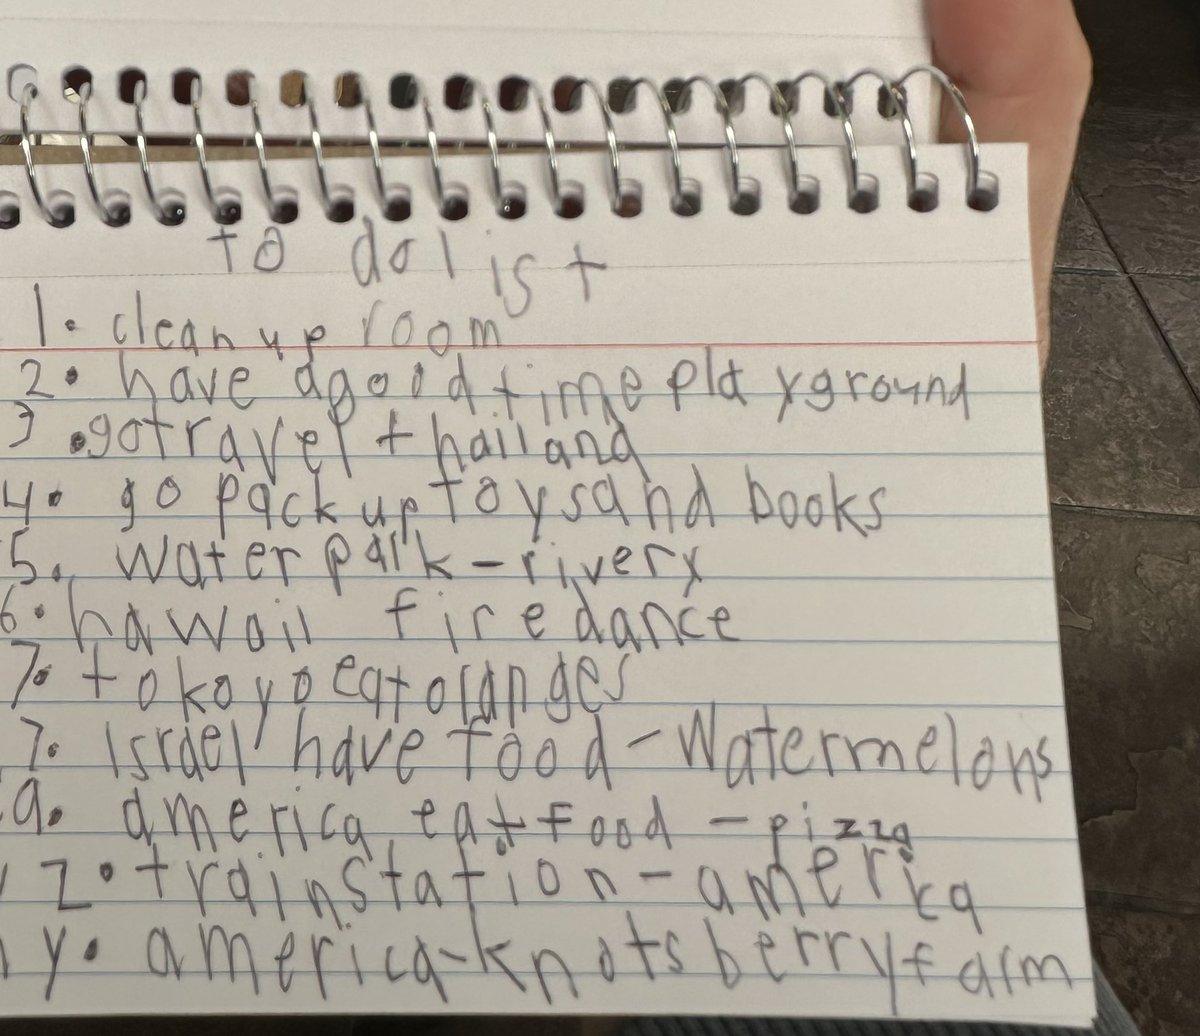 to do list
1. clean up room
2. have a good time playground
3. go travel thailand
4. go pack up toys and books
5. water park - riverx
6. hawaii fire dance
7. tokoyo eat oranges
7. Israel have food - Watermelons
9. america eat food - pizza
z. train station - america
y. america - knots berry farm